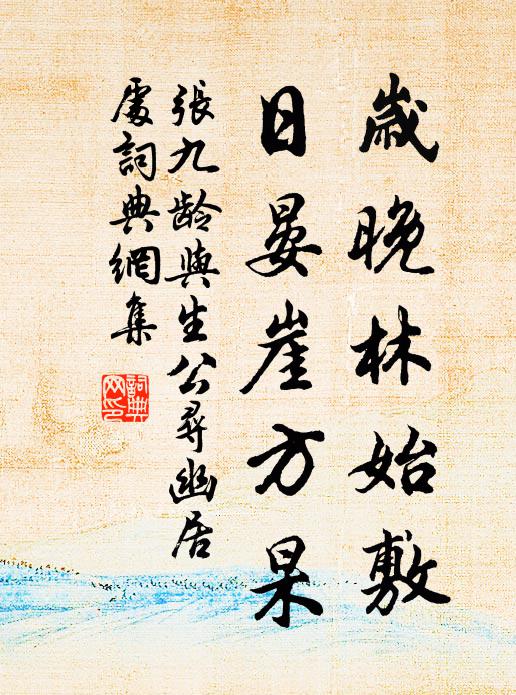 歲晚林始敷
日晏崖方杲
張九齡與生公尋幽居
處詞典網集
詞典
网印